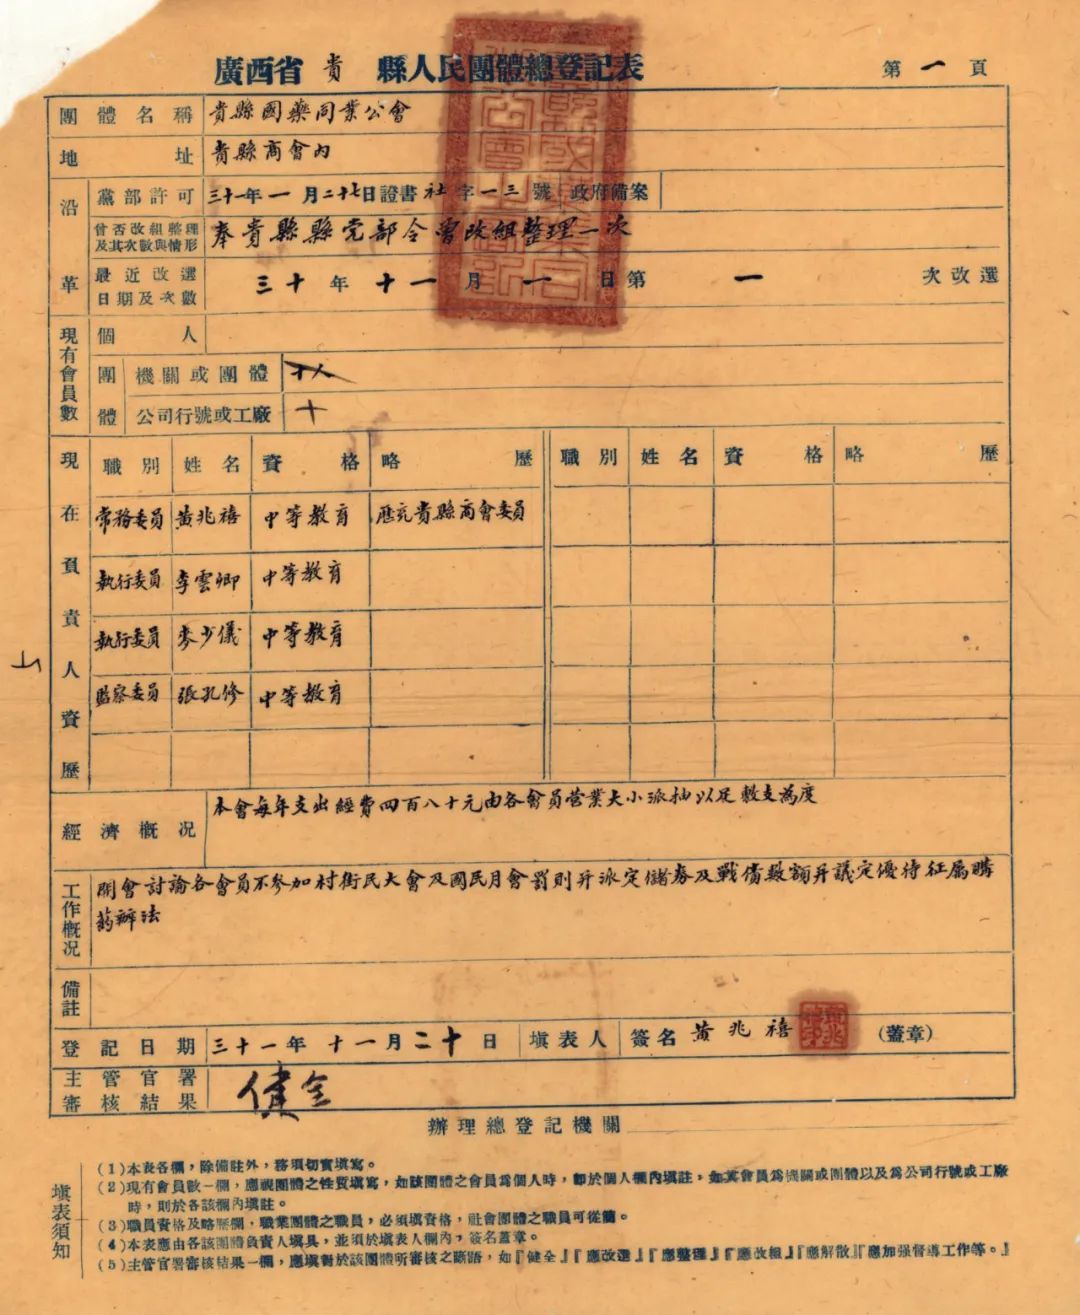 廣西省 貴 縣人民團體總登記表
第 一 頁
團體名稱 貴縣國藥同業公會
地址 貴縣商會內
沿革
黨部許可 三十一年一月二十七日證書社字一三號 政府備案
曾否改組整理及其次數與情形 奉貴縣縣党部令曾改組整理一次
最近改選日期及次數 三十年十一月一日第一次改選
現有會員數
個人
團體
機關或團體
公司行號或工廠 十
現在負責人資歷
職別 姓名 資格 略歷 職別 姓名 資格 略歷
常務委員 黃兆禧 中等教育 歷充貴縣商會委員
執行委員 李雲卿 中等教育
執行委員 麥少儀 中等教育
監察委員 張孔修 中等教育
經濟概况 本會每年支出經費四百八十元由各會員营業大小派抽以足敷支為度
工作概况 開會討論各會員不參加村街民大會及國民月會罰則并派定儲券及戰債數額并議定優待征属購
葯辦法
備註
登記日期 三十一年十一月二十日 填表人 簽名 黄兆禧 (蓋章)
主管官署審核結果 健全
辦理總登記機關
填表須知
(1)本表各欄，除備註外，務須切實填寫。
(2)現有會員數一欄，應視團體之性質填寫，如該團體之會員爲個人時，卽於個人欄內填註，如其會員爲機關或團體以及爲公司行號或工廠
時，則於各該欄內填註。
(3)職員資格及略歷欄，職業團體之職員，必須填資格，社會團體之職員可從簡。
(4)本表應由各該團體負責人填具，並須於填表人欄內，簽名蓋章。
(5)主管官署審核結果一欄，應填對於該團體所審核之斷語，如『健全』『應改選』『應整理』『應改組』『應解散』『應加强督導工作等。』